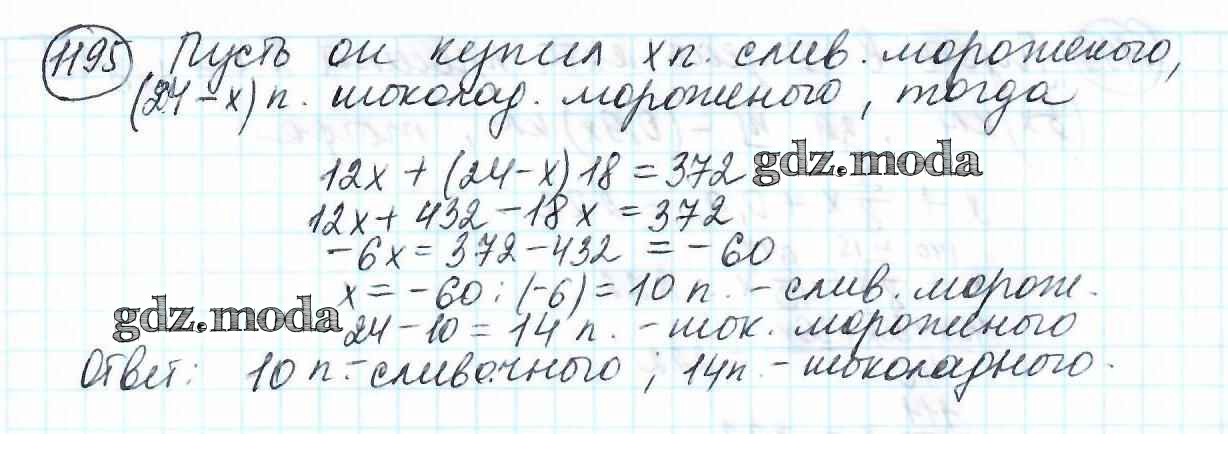 1195 Пусть он купил х п. слив. мороженого,
(24-х) п. шоколад. мороженого, тогда
12х + (24-х)18 = 372 gdz.moda
12х + 432 - 18х = 372
-6х = 372 - 432 = -60
х = -60 : (-6) = 10 п. - слив. морож.
gdz.moda 24 - 10 = 14 п. - шок. мороженого
Ответ: 10 п. - сливочного; 14п. - шоколадного.